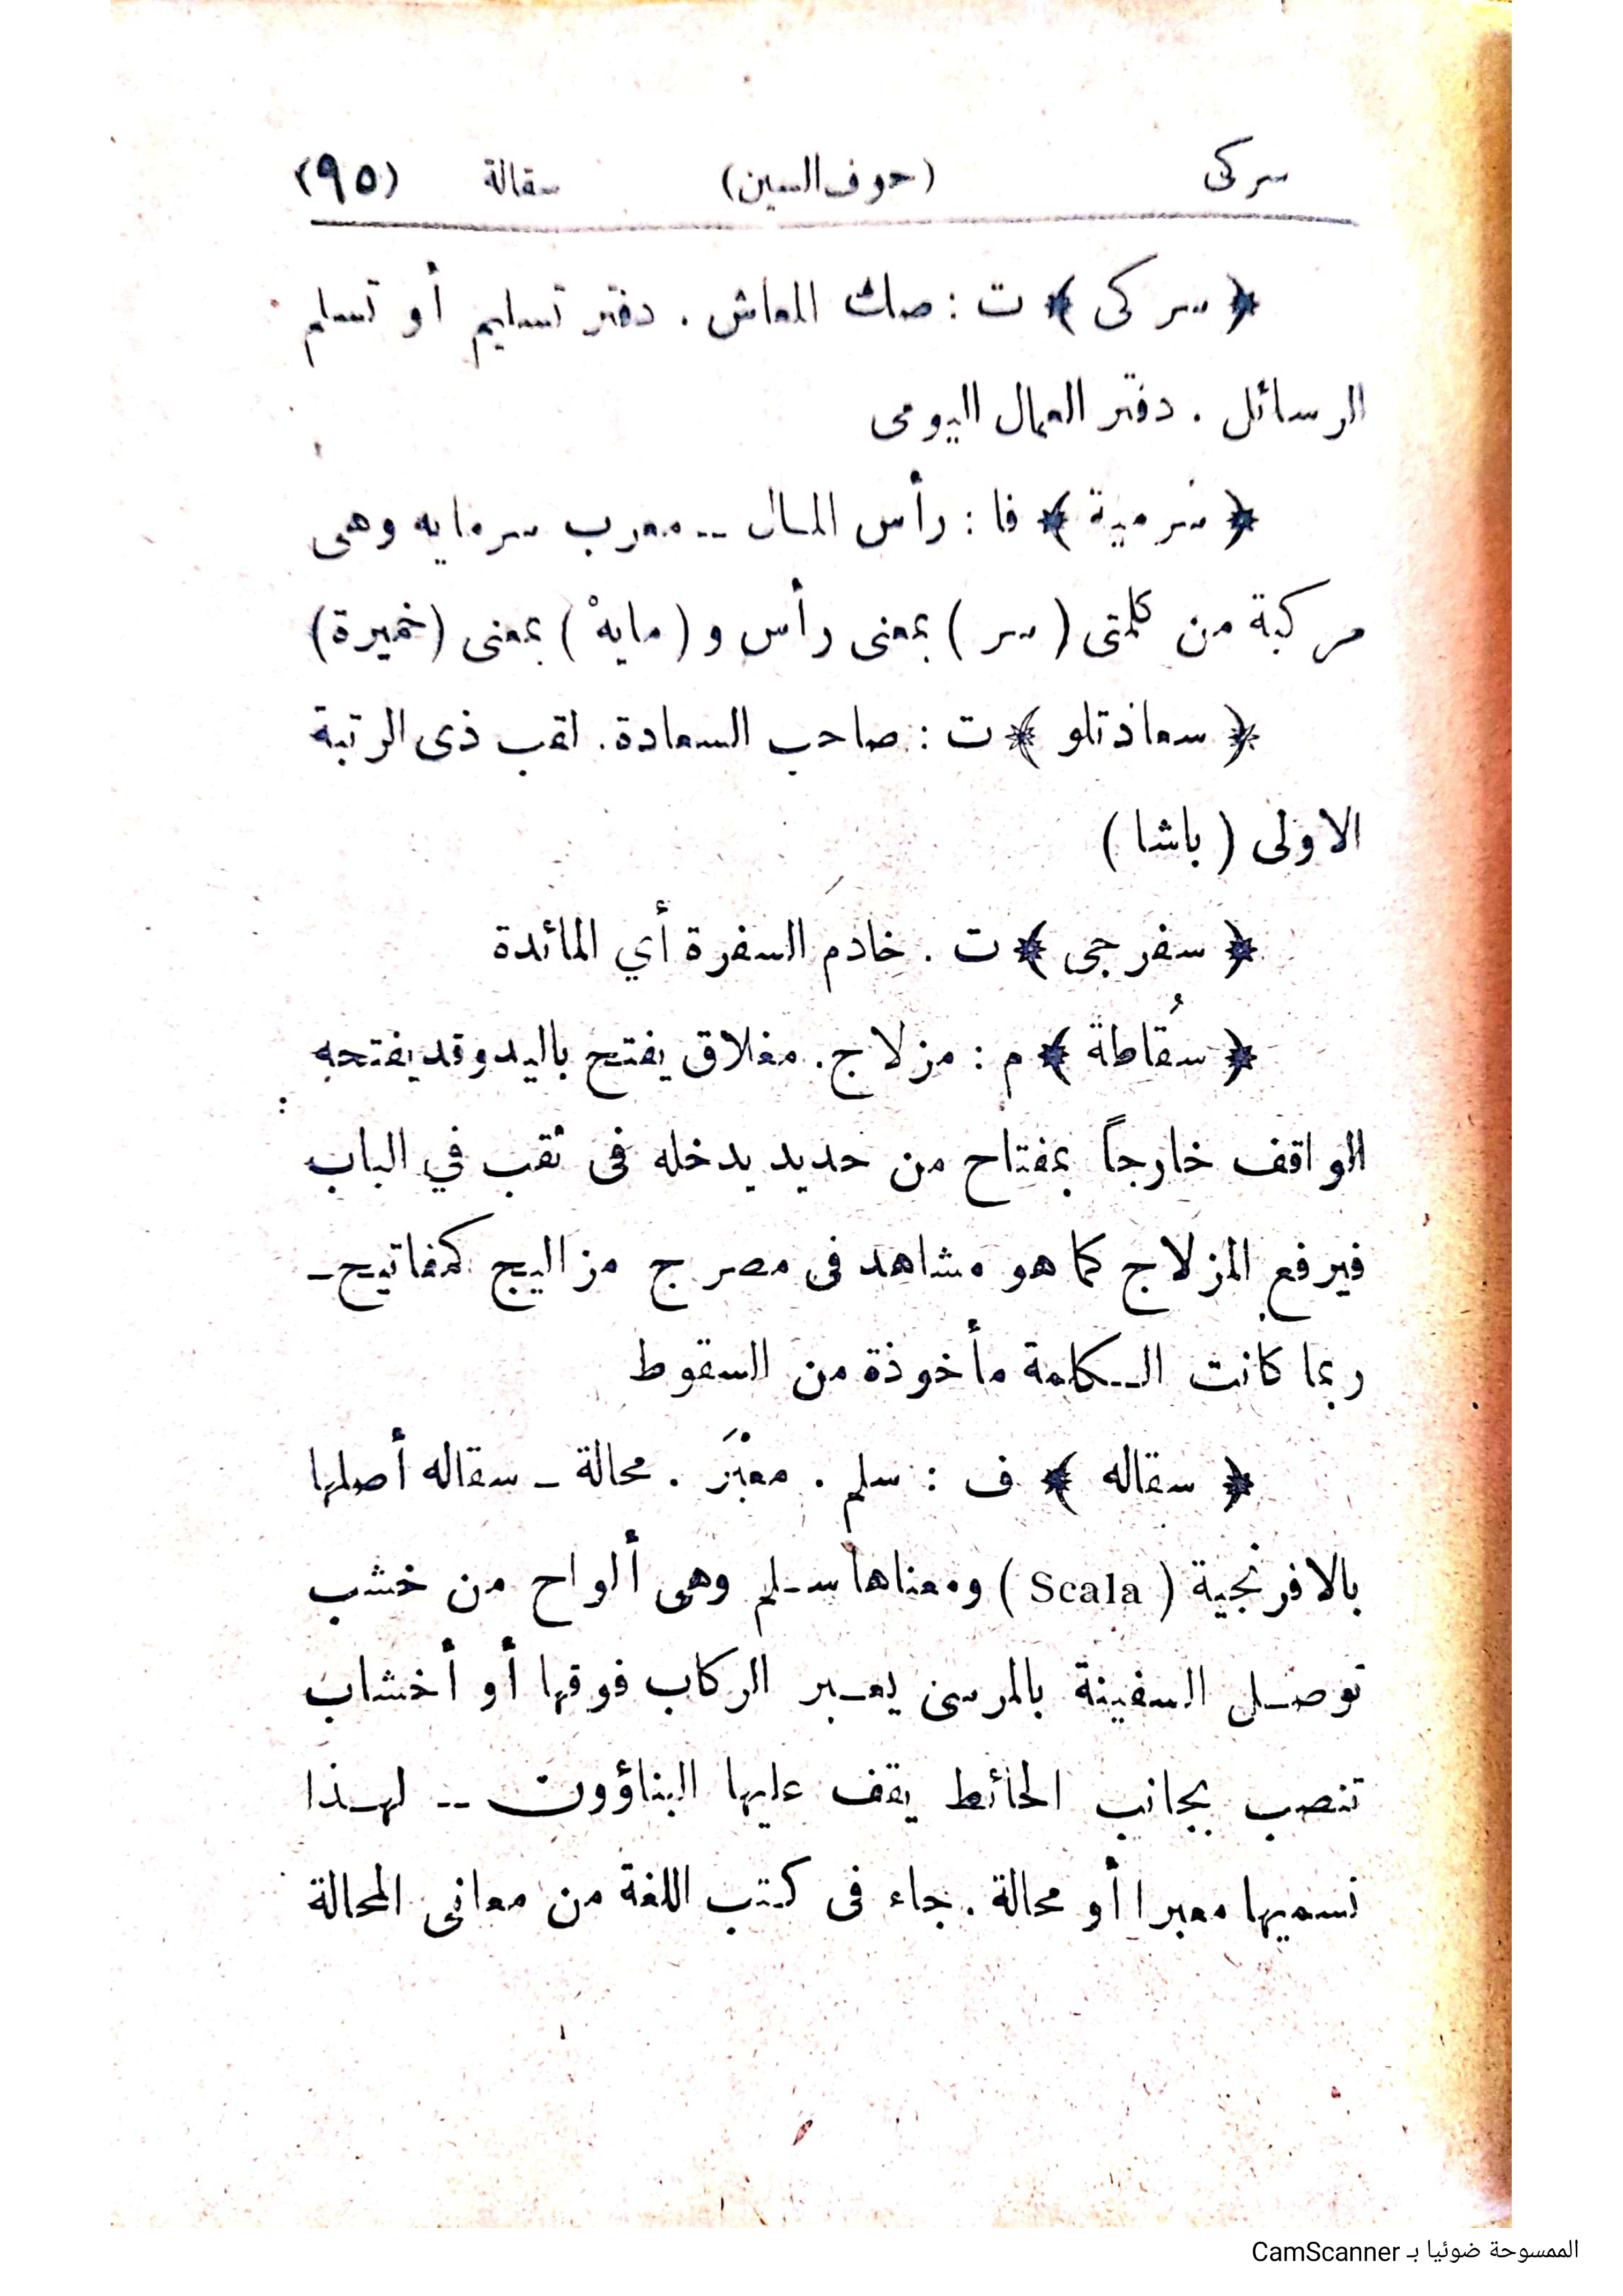 سركى (حرف السين) سقالة (٩٥)
﴿ سركى ﴾ ت : صك المعاش . دفتر تسليم أو تسلم
الرسائل . دفتر العمال اليومى
﴿ سرمية ﴾ فا : رأس المال -- معرب سرمايه وهى
مركبة من كلمتى ( سر ) بمعنى رأس و ( مايهْ ) بمعنى (خميرة)
﴿ سعادتلو ﴾ ت : صاحب السعادة. لقب ذى الرتبة
الاولى ( باشا )
﴿ سفرجى ﴾ ت . خادم السفرة أي المائدة
﴿ سُقاطة ﴾ م : مزلاج. مغلاق يفتح باليد وقد يفتحه
الواقف خارجاً بمفتاح من حديد يدخله فى ثقب في الباب
فيرفع المزلاج كما هو مشاهد فى مصر ج مزاليج كمفاتيح-
ربما كانت الكلمة مأخوذة من السقوط
﴿ سقاله ﴾ ف : سلم . معْبَر . محالة - سقاله أصلها
بالافرنجية ( Scala ) ومعناها سلم وهى ألواح من خشب
توصل السفينة بالمرسى يعبر الركاب فوقها أو أخشاب
تنصب بجانب الحائط يقف عليها البناؤون -- لهذا
نسميها معبرا أو محالة . جاء فى كتب اللغة من معانى المحالة
الممسوحة ضوئيا بـ CamScanner